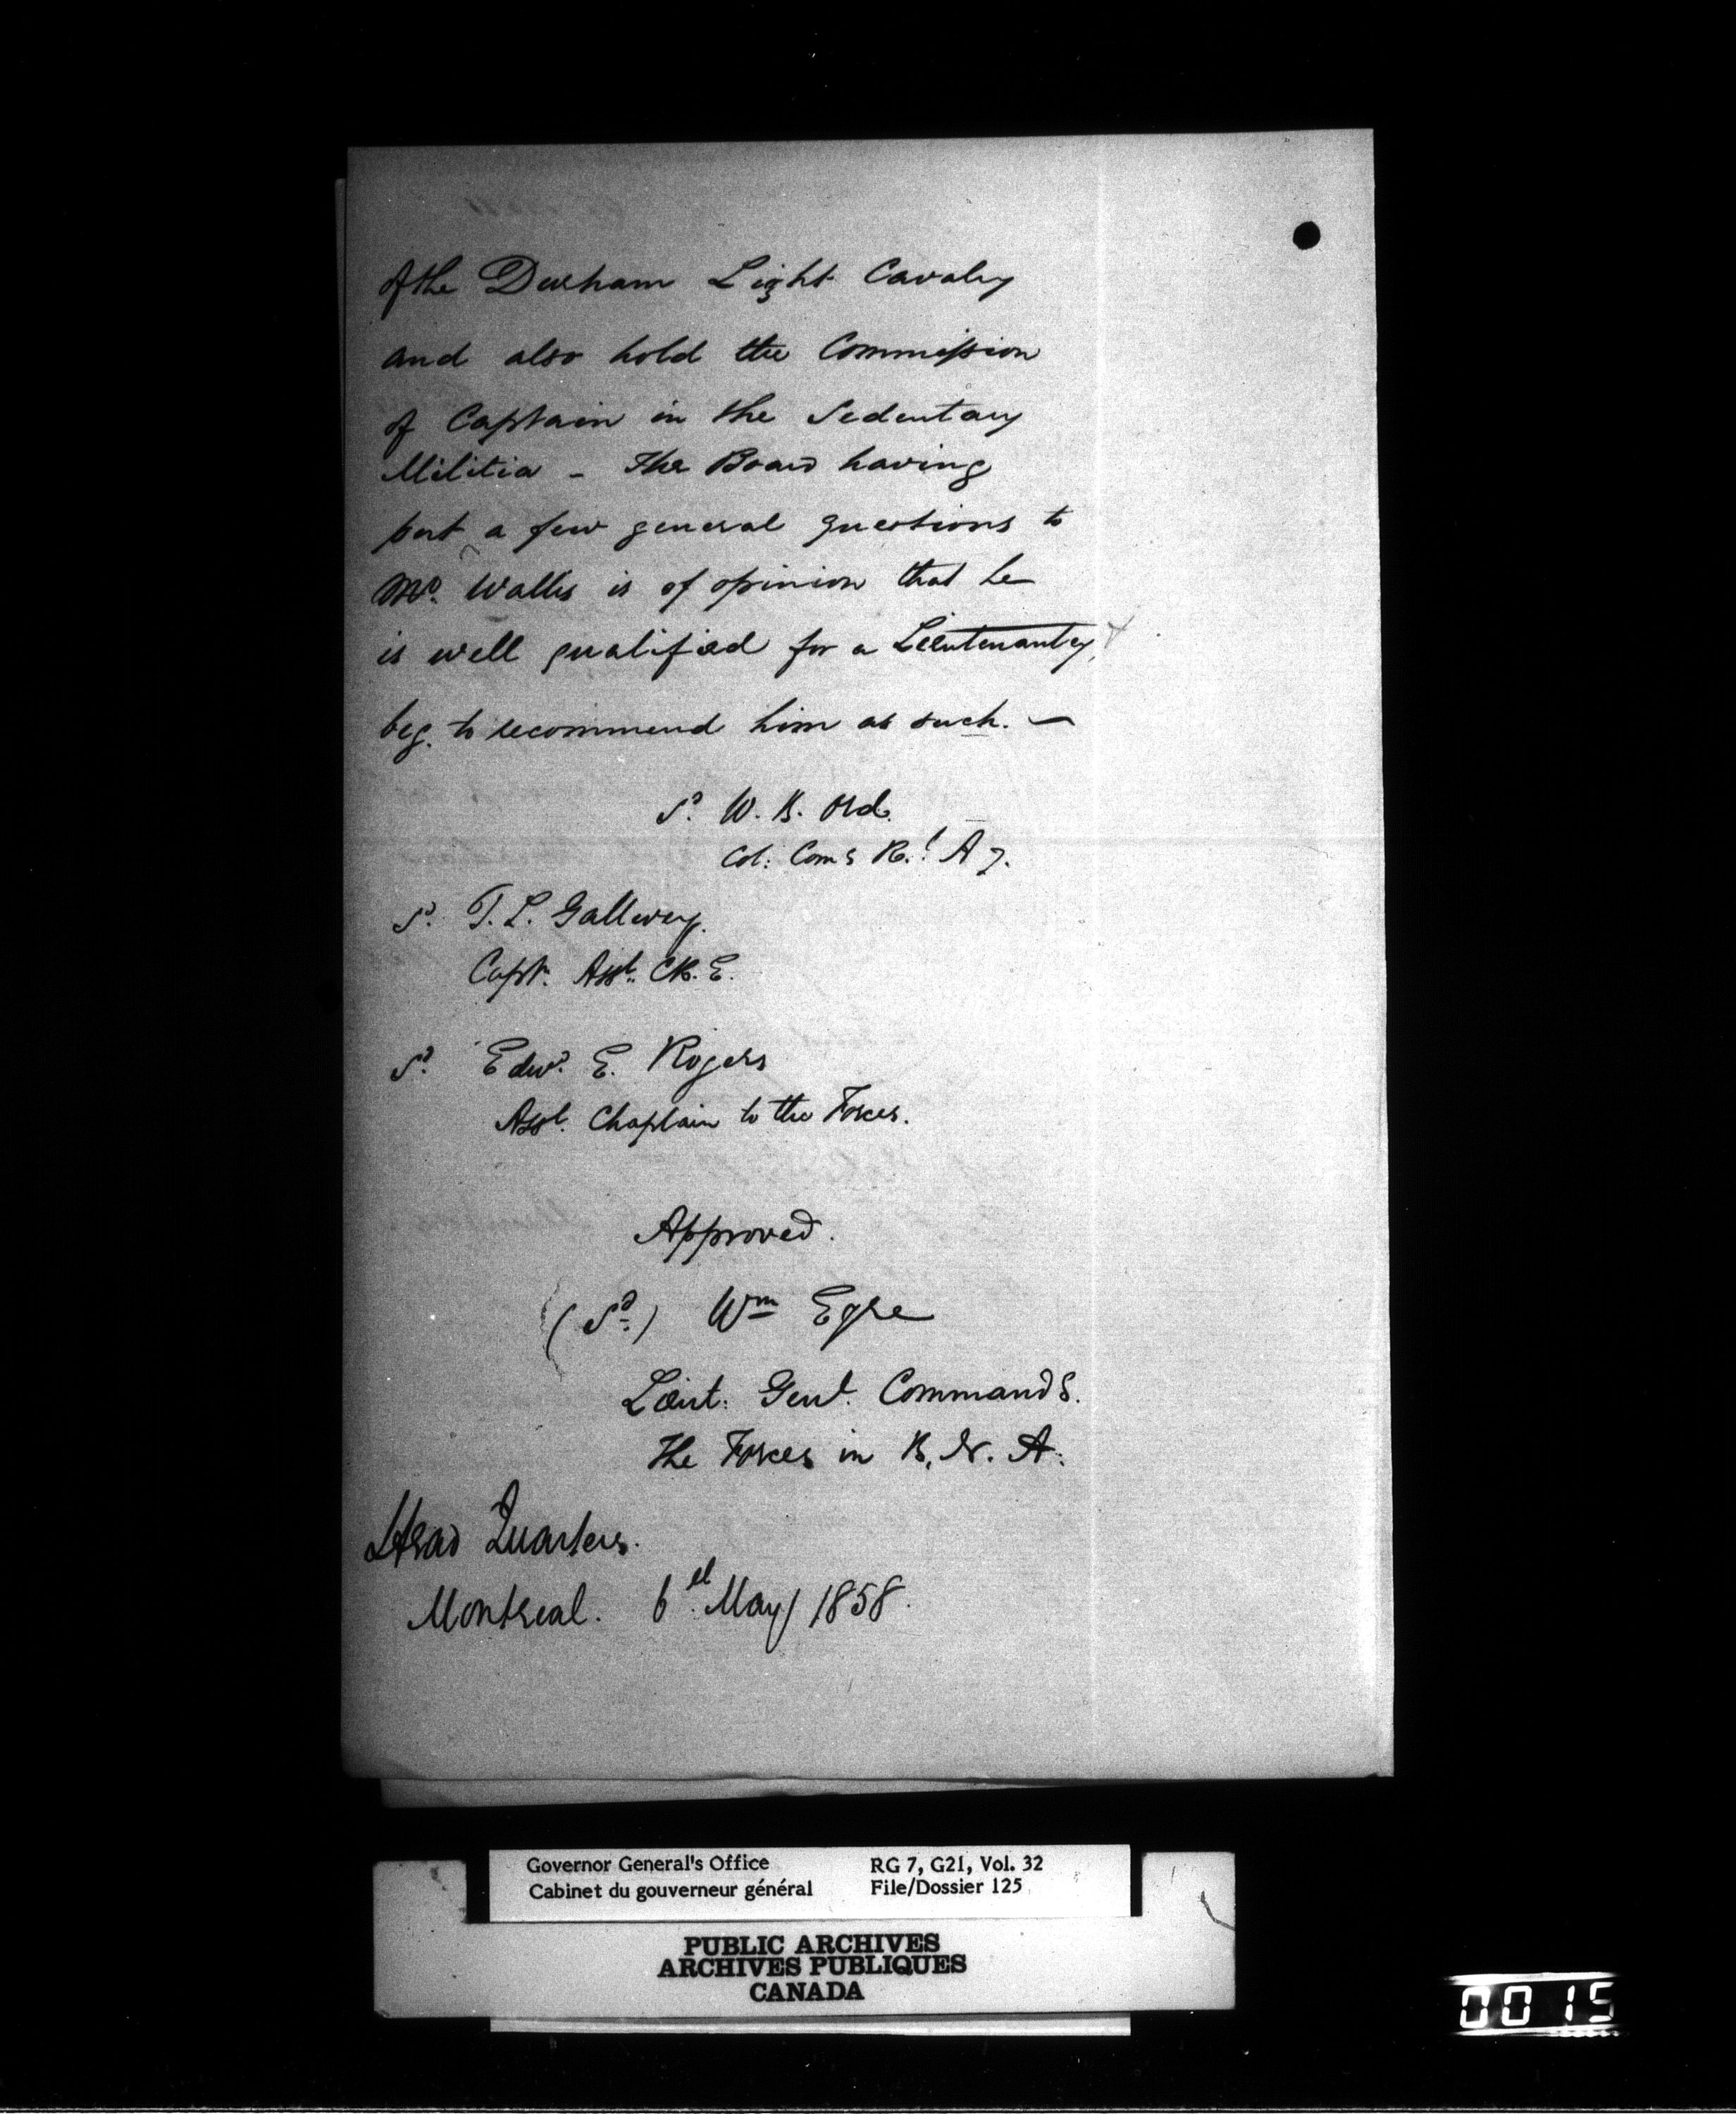 of the Durham Light Cavalry
and also hold the Commission
of Captain in the Sedentary
Militia - The Board having
put a few general questions to
Mr. Wallis is of opinion that he
is well qualified for a Lieutenantcy, +
beg. to recommend him as such. —
Sd. W. B. Ord.
Col: Comg R.l Ay.
Sd. T. L. Gallwey.
Capt. Asst. CR.E.
Sd. Edwd. E. Rogers
Asst. Chaplain to the Forces.
Approved.
(Sd.) Wm Eyre
Lieut: Genl. Commandg.
The Forces in B. N. A.
Head Quarters.
Montreal. 6th May 1858.
Governor General's Office RG 7, G21, Vol. 32
Cabinet du gouverneur général File/Dossier 125
PUBLIC ARCHIVES
ARCHIVES PUBLIQUES
CANADA
0015